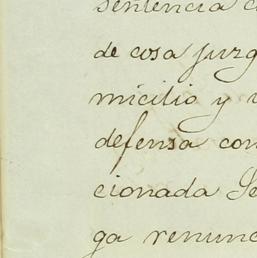 sentencia
de cosa juzg
micilio y
defensa con
cionada Se
ga renunc